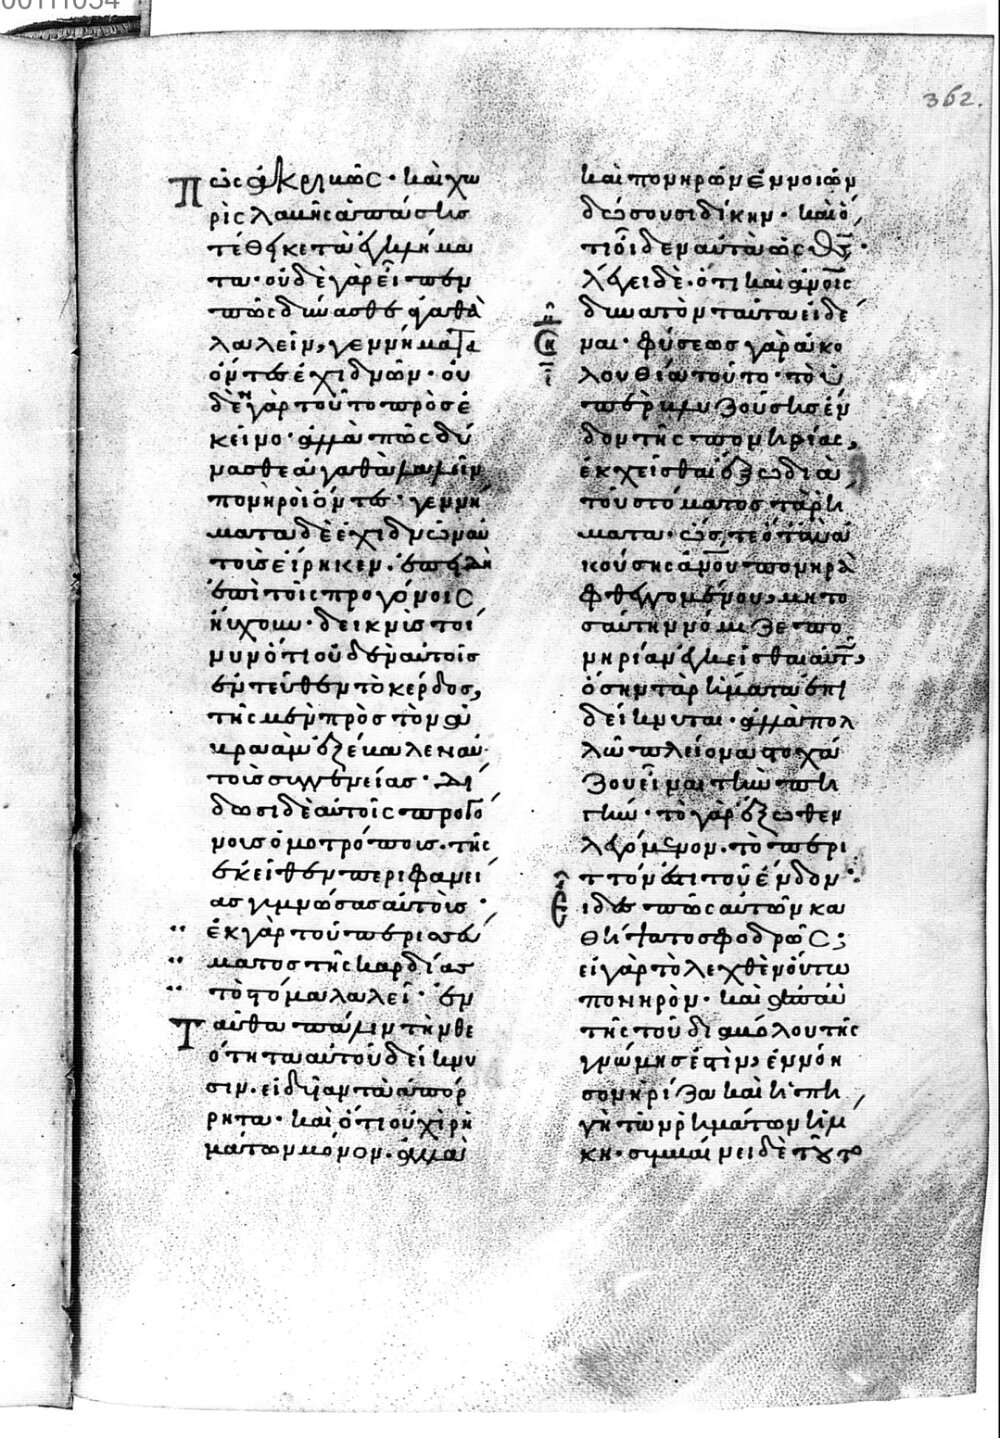 00111054
362.
Πῶς ἀκριβῶς· καὶ χω
ρὶς λαμπῆς ἁπάσης
τέθεικε τὰ ἐγκλήμα
τα· οὐδὲ γὰρ εἶπεν
πῶς δύνασθε ἀγαθὰ
λαλεῖν, γεννήματα
ὄντες ἐχιδνῶν· οὐ
δὲν γὰρ τοῦτο πρὸς ἐ
κεῖνο· ἀλλὰ πῶς δύ
νασθε ἀγαθὰ λαλεῖν
πονηροὶ ὄντες· γεννή
ματα δὲ ἐχιδνῶν αὐ
τοὺς εἴρηκεν. ἐπειδὴ
ἐπὶ τοῖς προγόνοις
ηὔχουν· δεικνὺς τοί
νυν ὅτι οὐδὲν αὐτοῖς
ἐντεῦθεν τὸ κέρδος,
τῆς μὲν πρὸς τὸν ἀ
βραὰμ ἐξέβαλεν αὐ
τοὺς συγγενείας· δί
δωσι δὲ αὐτοῖς προγό
νους ὁμοτρόπους. τῆς
ἐκεῖθεν περιφανεί
ας γυμνώσας αὐτούς·
ἐκ γὰρ τοῦ περισσεύ
ματος τῆς καρδίας
τὸ στόμα λαλεῖ· ἐν
Ταῦθα πάλιν τὴν θε
ότητα αὐτοῦ δείκνυ
σιν. εἰδυῖαν τὰ ἀπόρ
ρητα· καὶ ὅτι οὐχὶ ῥη
μάτων μόνον. ἀλλὰ
καὶ πονηρῶν ἐννοιῶν
δώσουσι δίκην· καὶ ὅ
τι οἶδεν αὐτὰ ὡς θς·
λέγει δὲ· ὅτι καὶ ἀνοις
δυνατὸν ταῦτα εἰδέ
ναι· φύσεως γὰρ ἀκο
λουθία τοῦτο· τὸ ὑ
περβλυζούσης ἔν
δον τῆς πονηρίας,
ἐκχεῖσθαι ἔξω διὰ
τοῦ στόματος τὰ ῥή
ματα· ὥστε ὅταν ἀ
κούσης ἀνου πονηρὰ
φθεγγομένου, μὴ το
σαύτην νόμιζε πο
νηρίαν ἐγκεῖσθαι αὐτῷ,
ὅσην τὰ ῥήματα ἐπι
δείκνυται· ἀλλὰ πολ
λῶ πλείονα στοχά
ζου εἶναι τὴν πη
γήν· τὸ γὰρ ἔξωθεν
λεγόμενον. τὸ περι
ττόν ἐστι τοῦ ἔνδον·
ἴδε πῶς αὐτῶν κα
θήψατο σφοδρῶς;
εἰ γὰρ τὸ λεχθὲν οὕτω
πονηρὸν· καὶ ἀπ' αὐ
τῆς τοῦ διαβόλου τῆς
γνώμης ἐστὶν, ἐννόη
σον ἡ ρίζα καὶ ἡ πη
γὴ τῶν ῥημάτων ἡλί
κη. συμβαίνει δὲ τοῦτο